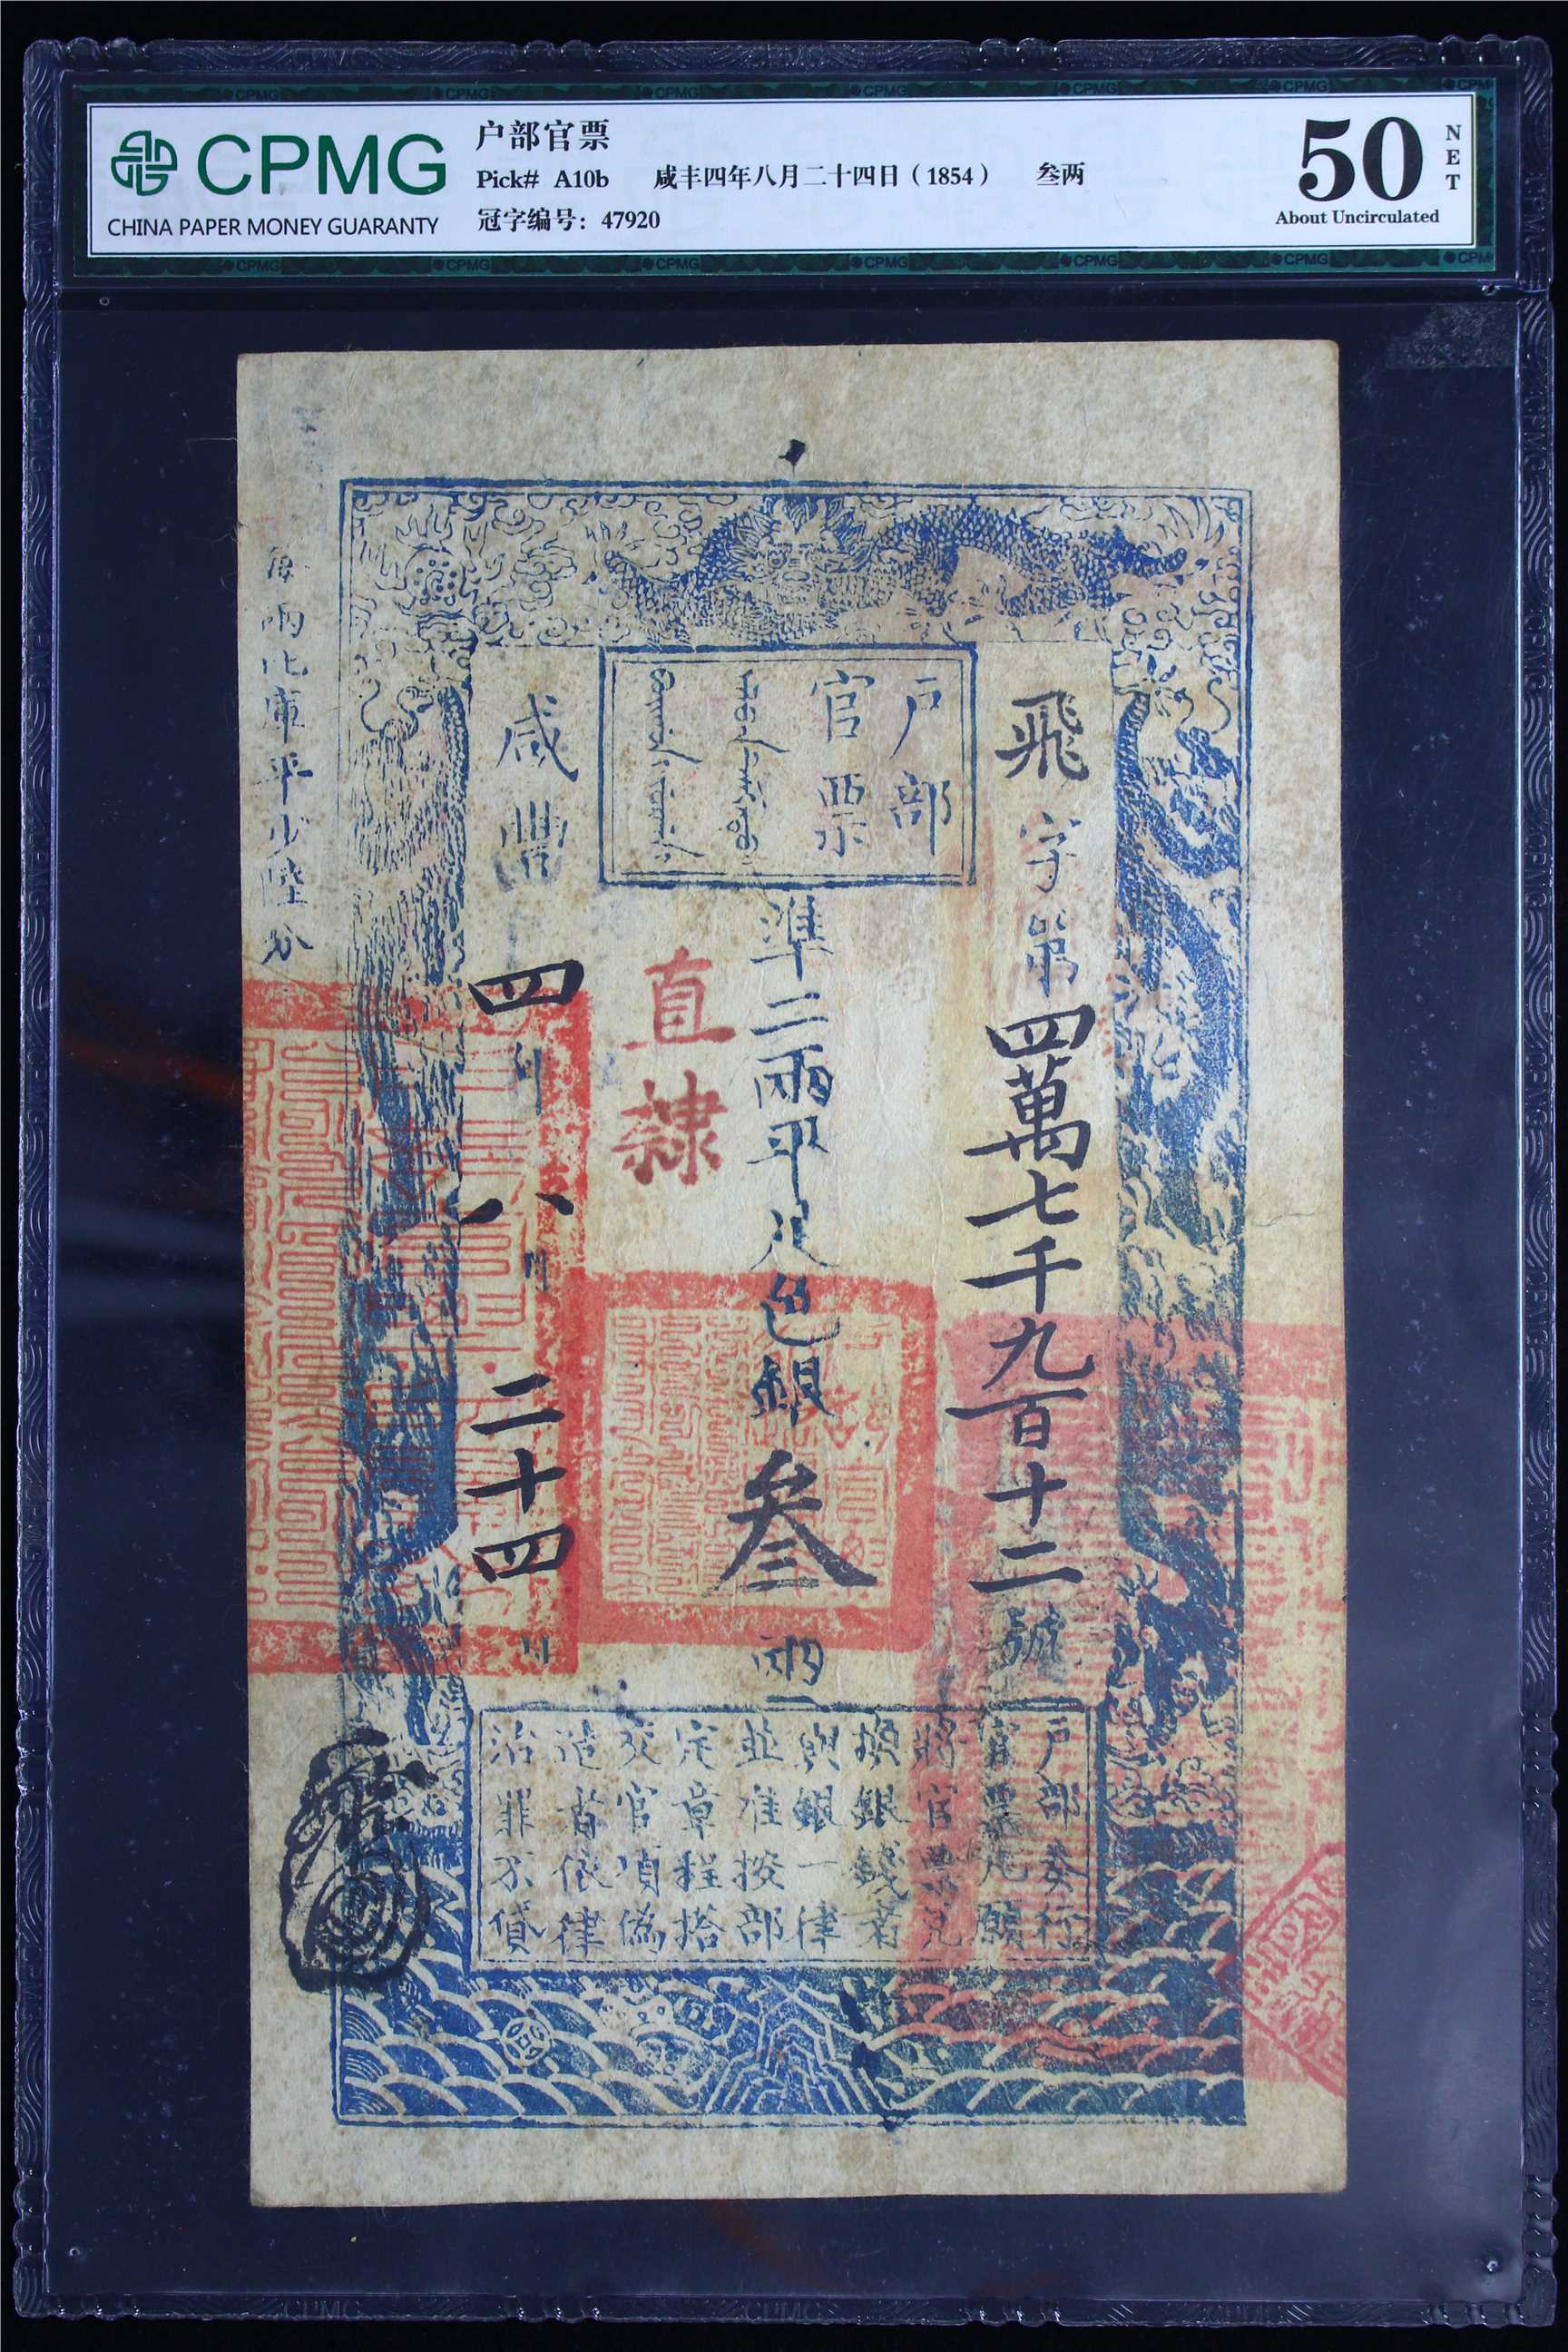 CPMG
CHINA PAPER MONEY GUARANTY
户部官票
Pick# A10b 咸丰四年八月二十四日（1854） 叁两
冠字编号：47920
50
NET
About Uncirculated
户部
官票
飛字第四萬七千九百十二號
準二兩平足色銀叁兩
直隸
咸豐四年八月二十四日
每兩比庫平少陸分
户部奏行
官票凡願
將官票兑
換銀錢者
與銀一律
並准按部
定章程搭
交官項偽
造者依律
治罪不貸